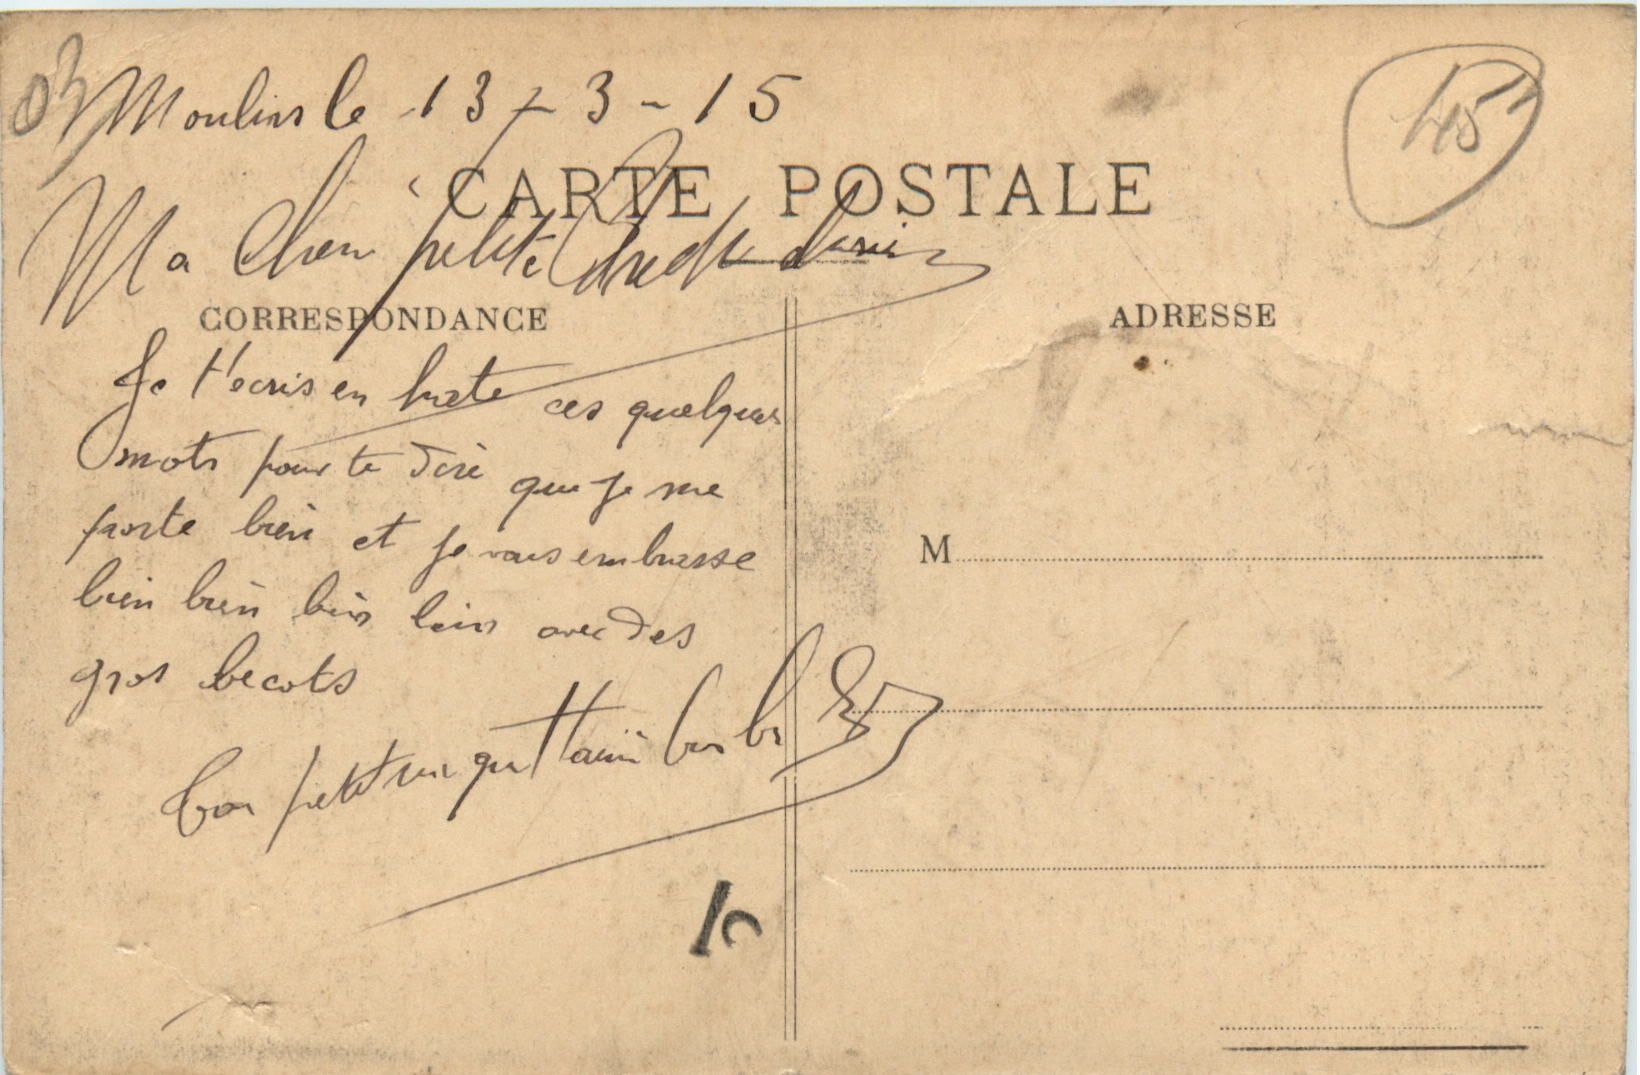 03
Moulins le 13-3-15
45
CARTE POSTALE
Ma Chere petite
CORRESPONDANCE
ADRESSE
Je t'ecris en hate ces quelques
mots pour te dire que je me
porte bien et je vous embrasse
bien bien bien bien avec des
gros becots
M
Ton petit qui t'aime
10